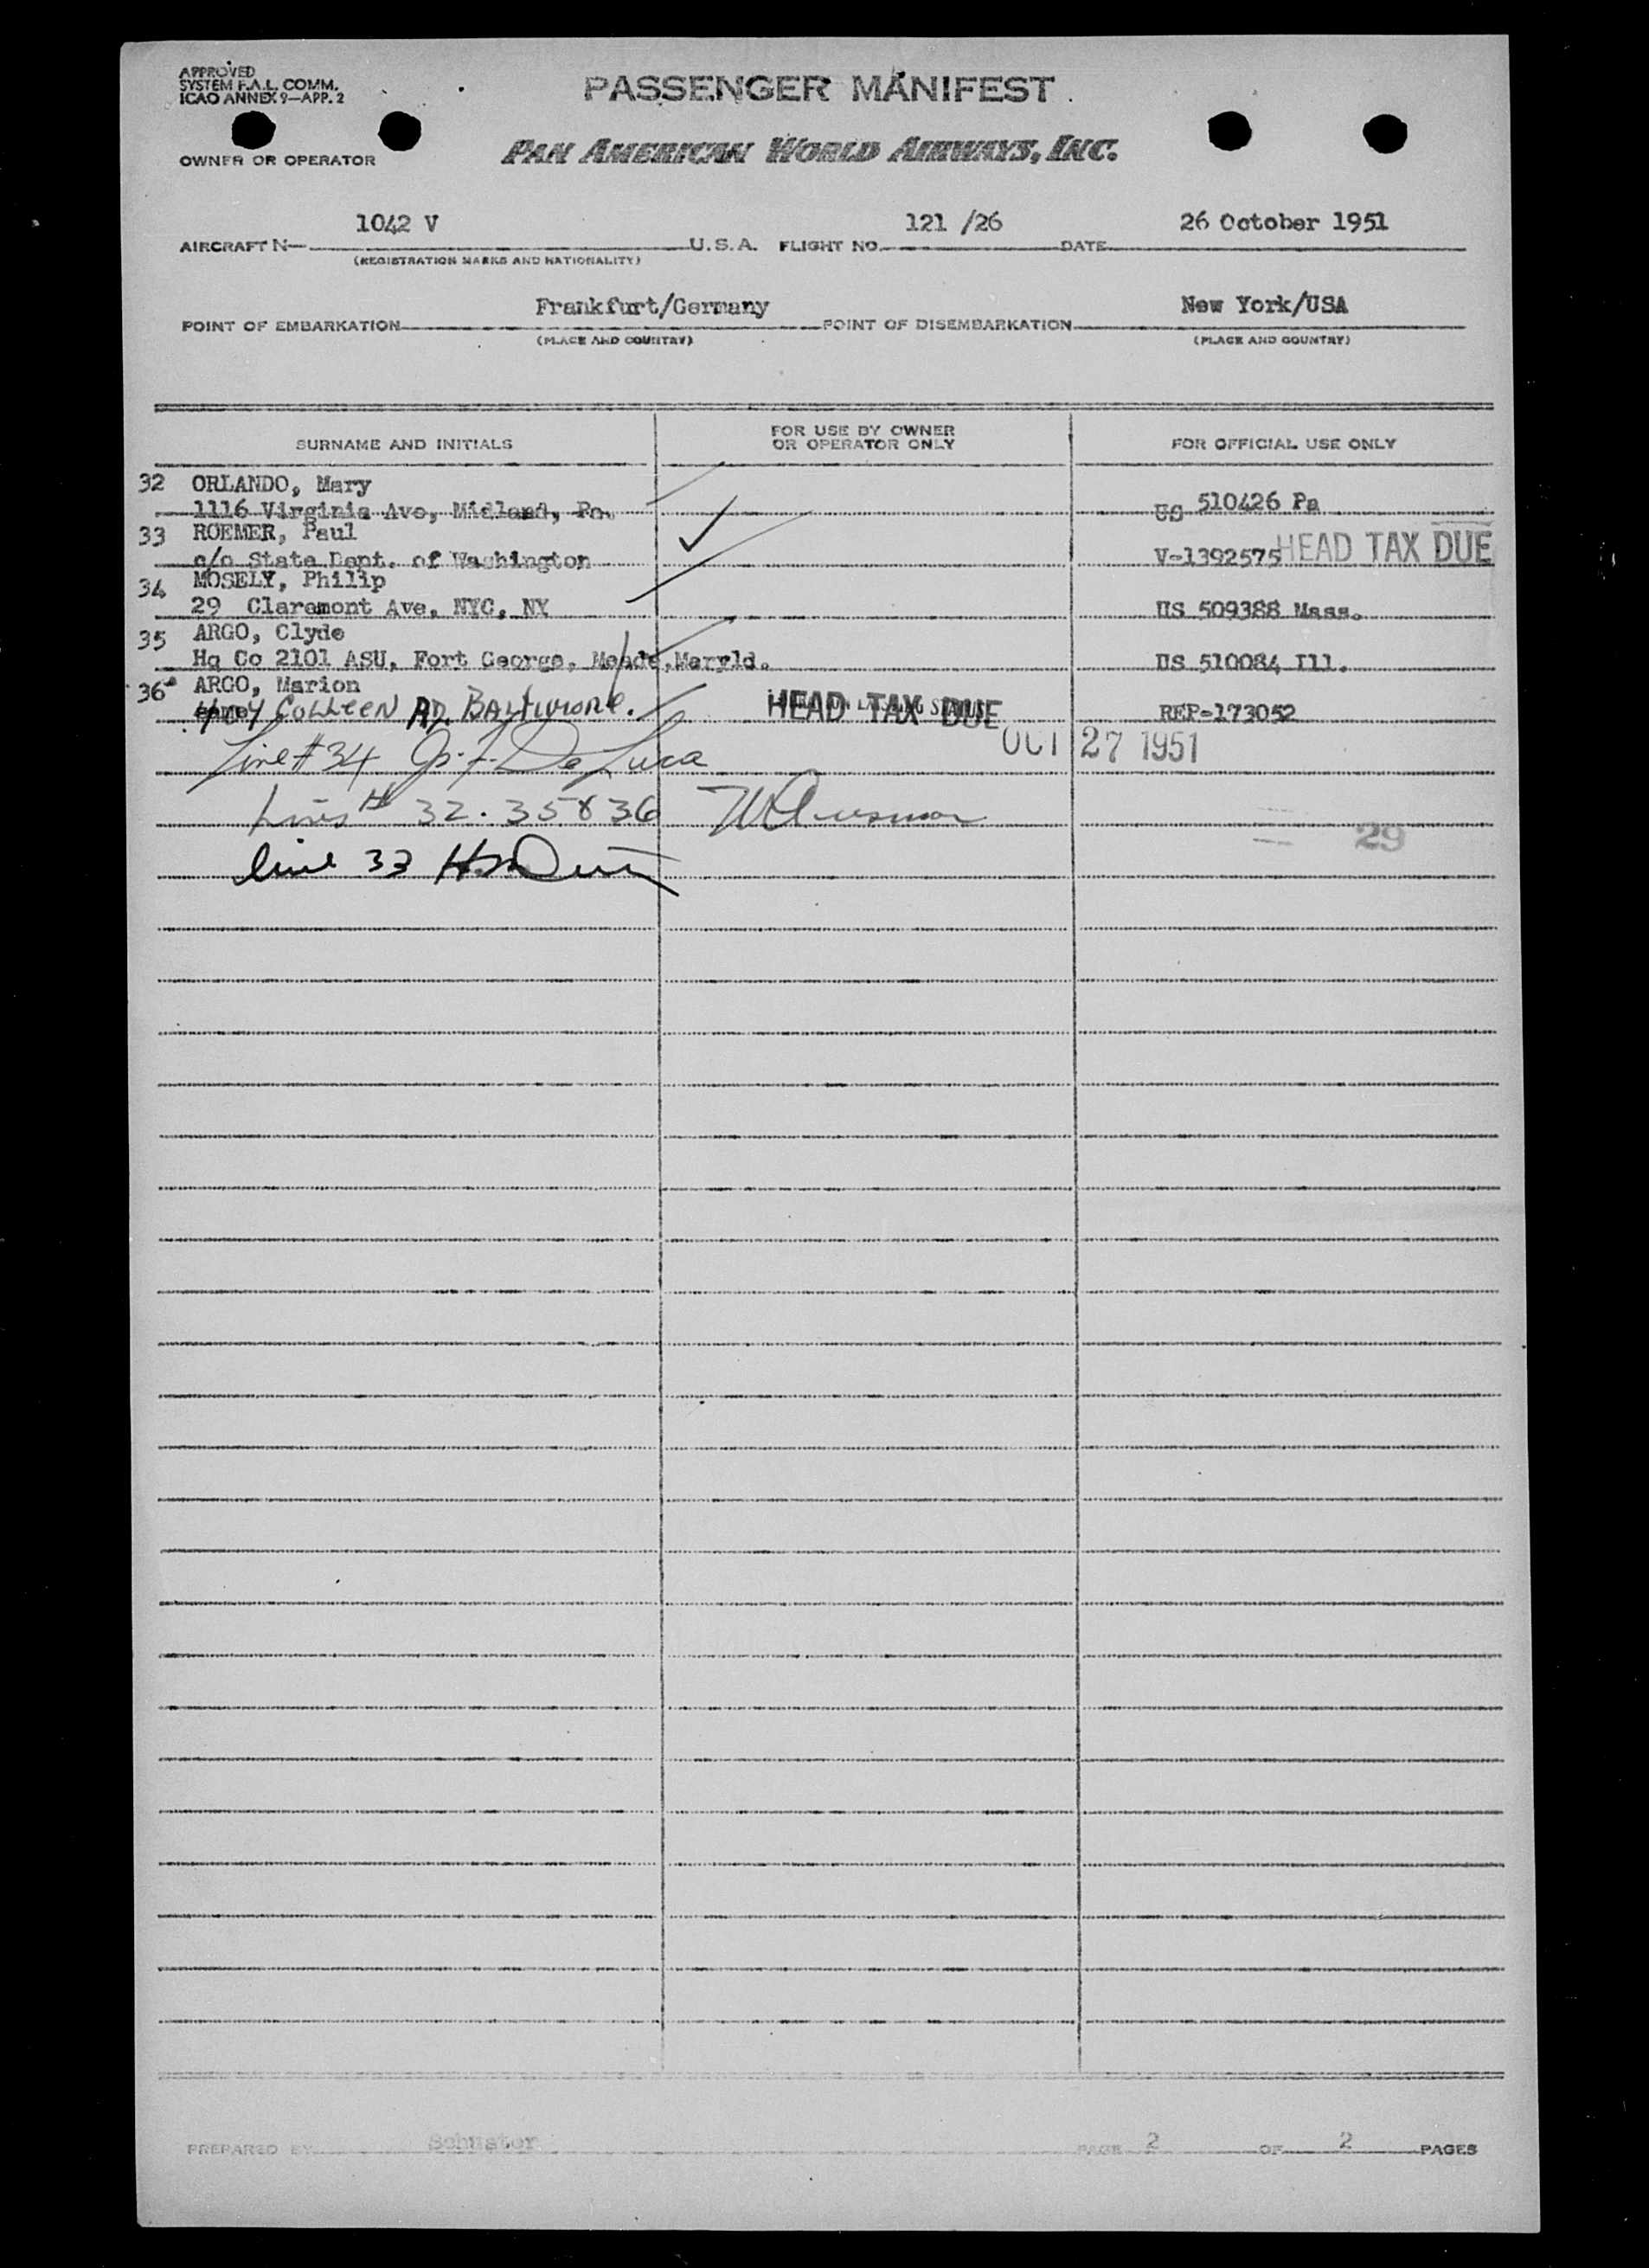 APPROVED
SYSTEM F.A.L. COMM.
ICAO ANNEX 9—APP. 2
PASSENGER MANIFEST
OWNER OR OPERATOR
PAN AMERICAN WORLD AIRWAYS, INC.
1042 V 121 /26 26 October 1951
AIRCRAFT N— U.S.A. FLIGHT NO. DATE
(REGISTRATION MARKS AND NATIONALITY)
Frankfurt/Germany New York/USA
POINT OF EMBARKATION POINT OF DISEMBARKATION
(PLACE AND COUNTRY) (PLACE AND COUNTRY)
SURNAME AND INITIALS FOR USE BY OWNER OR OPERATOR ONLY FOR OFFICIAL USE ONLY
32 ORLANDO, Mary
1116 Virginia Ave, Midland, Pa. US 510426 Pa
33 ROEMER, Paul
c/o State Dept. of Washington V-1392575 HEAD TAX DUE
34 MOSELY, Philip
29 Claremont Ave, NYC, NY US 509388 Mass.
35 ARGO, Clyde
Hq Co 2101 ASU, Fort George, Meade, Maryld. US 510084 Ill.
36 ARGO, Marion
COLLEEN RD. BALTIMORE. HEAD TAX DUE REP-173052
OCT 27 1951
Line # 34 De Luca
Lines # 32. 35 & 36
29
line 33
PREPARED BY Schuster PAGE 2 OF 2 PAGES